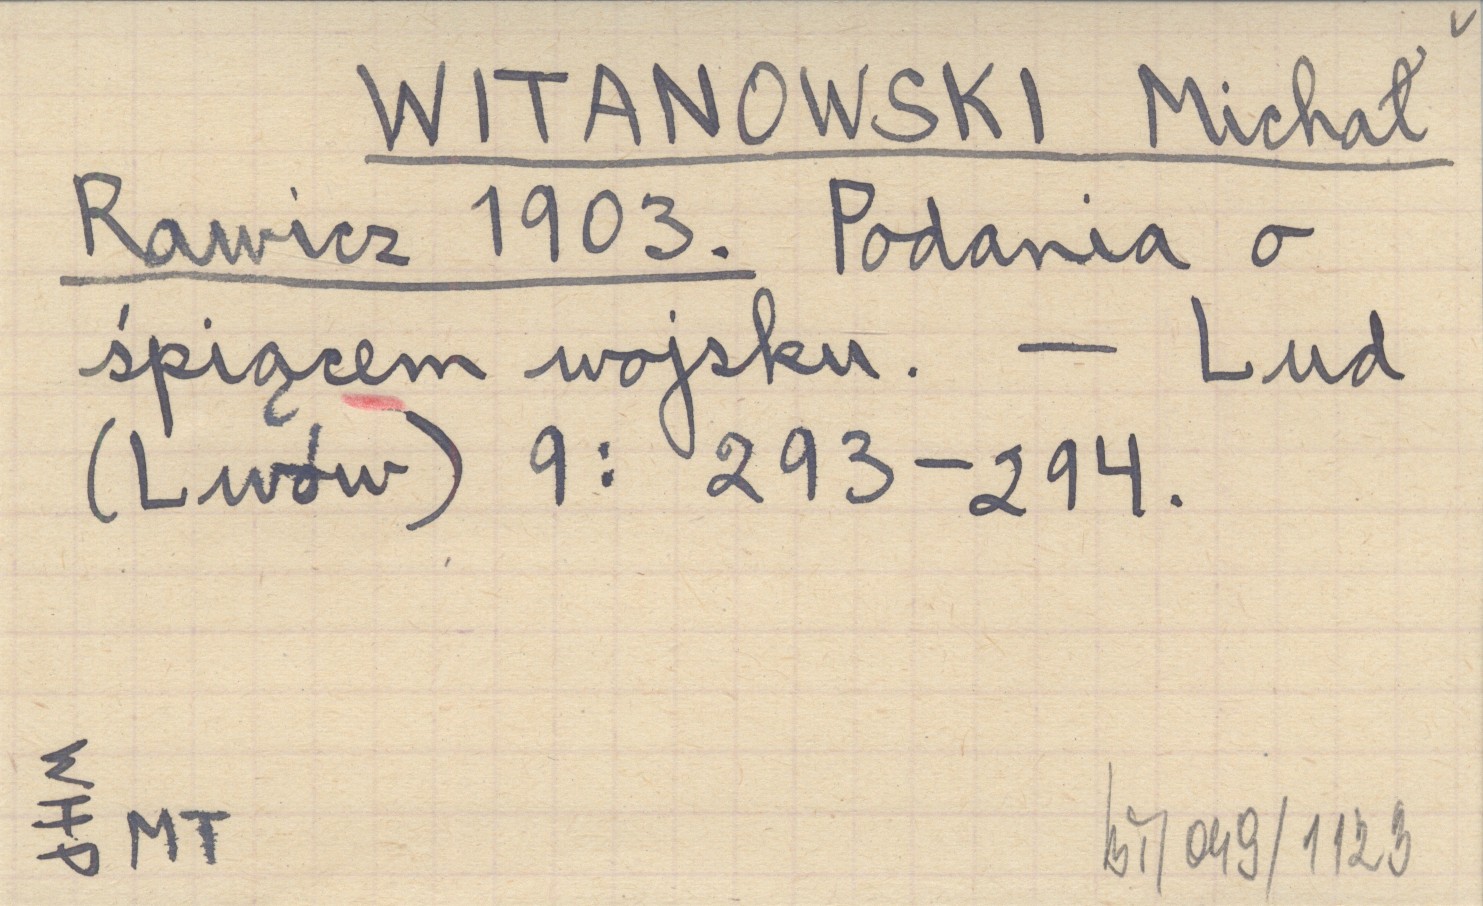 WITANOWSKI Michał
Rawicz 1903. Podania o
śpiącem wojsku. — Lud
(Lwów) 9: 293-294.
MT
049/1123